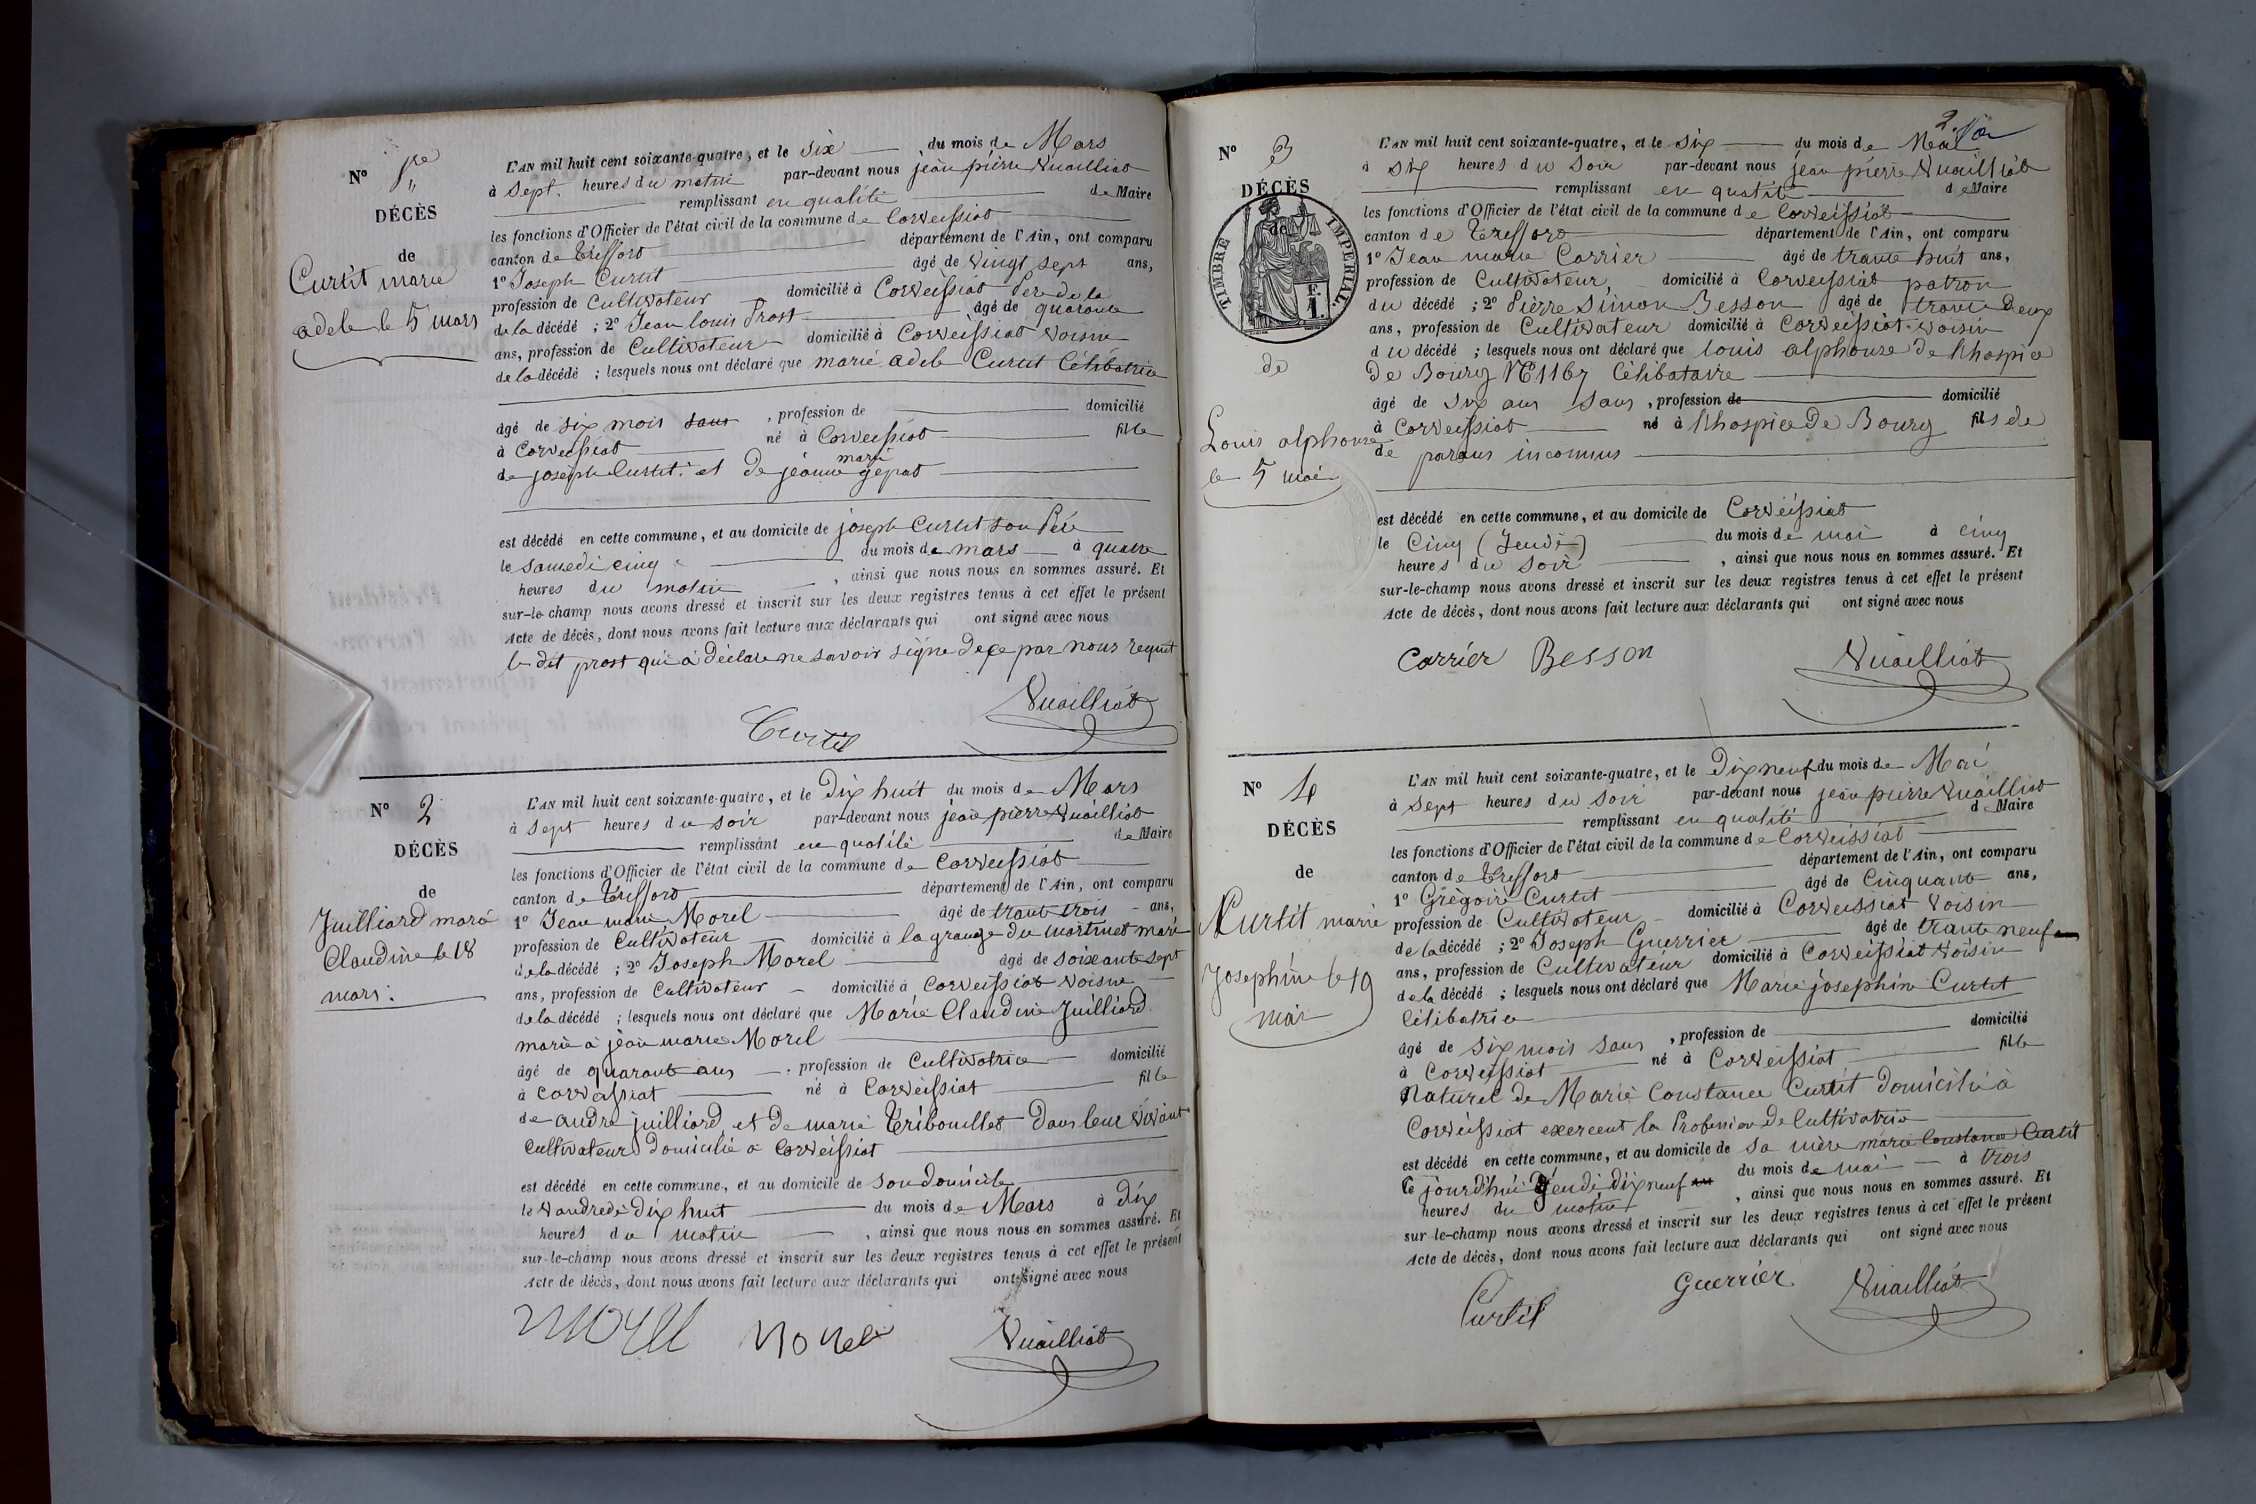 N° 1re
DÉCÈS
de
Curtit marie
adele le 5 mars
L'AN mil huit cent soixante-quatre, et le six du mois de Mars
à sept heures du matin par-devant nous jean pierre Vuailliat
remplissant en qualité de Maire
les fonctions d'Officier de l'état civil de la commune de Corveissiat
canton de Treffort département de l'Ain, ont comparu
1° Joseph Curtit âgé de vingt sept ans,
profession de Cultivateur domicilié à Corveissiat Père de la
de la décédé ; 2° Jean louis Prost âgé de quarante
ans, profession de Cultivateur domicilié à Corveissiat Voisin
de la décédé ; lesquels nous ont déclaré que marie adele Curtit Célibatrice
âgé de six mois sans , profession de domicilié
à Corveissiat né à Corveissiat fille
de joseph Curtit et de jeanne marie
est décédé en cette commune, et au domicile de joseph Curtit son Père
le samedi cinq du mois de mars à quatre
heures du matin , ainsi que nous nous en sommes assuré. Et
sur-le-champ nous avons dressé et inscrit sur les deux registres tenus à cet effet le présent
Acte de décès, dont nous avons fait lecture aux déclarants qui ont signé avec nous
le dit prost qui à déclare ne savoir signe de ce par nous requit
Curtit Vuailliat
N° 2
DÉCÈS
de
Juilliard marie
Claudine le 18
mars.
L'AN mil huit cent soixante-quatre, et le Dix huit du mois de Mars
à sept heures du soir par-devant nous jean pierre Vuailliat
remplissant en qualité de Maire
les fonctions d'Officier de l'état civil de la commune de Corveissiat
canton de Treffort département de l'Ain, ont comparu
1° Jean marie Morel âgé de trante trois ans,
profession de Cultivateur domicilié à la grange du martinet mari
de la décédé ; 2° Joseph Morel âgé de soixante sept
ans, profession de Cultivateur domicilié à Corveissiat Voisin
de la décédé ; lesquels nous ont déclaré que Marie Claudine Juilliard
marie à jean marie Morel
âgé de quarante ans , profession de Cultivatrice domicilié
à Corveissiat né à Corveissiat fille
de andré juilliard et de marie Tribouillet Dans leur vivant
Cultivateur Domicilié à Corveissiat
est décédé en cette commune, et au domicile de son domicile
le Vandredi Dix huit du mois de Mars à dix
heures du matin , ainsi que nous nous en sommes assuré. Et
sur-le-champ nous avons dressé et inscrit sur les deux registres tenus à cet effet le présent
Acte de décès, dont nous avons fait lecture aux déclarants qui ont signé avec nous
morel morel Vuailliat
2
N° 3
DÉCÈS
de
TIMBRE IMPÉRIAL.
F.
1.
de
Louis alphonse
le 5 mai
L'AN mil huit cent soixante-quatre, et le six du mois de Mai
à six heures du soir par-devant nous jean pierre Vuailliat
remplissant en qualité de Maire
les fonctions d'Officier de l'état civil de la commune de Corveissiat
canton de Treffort département de l'Ain, ont comparu
1° Jean marie Carrier âgé de trante huit ans,
profession de Cultivateur, domicilié à Corveissiat patron
du décédé ; 2° Pierre Simon Besson âgé de trante Deux
ans, profession de Cultivateur domicilié à Corveissiat Voisin
du décédé ; lesquels nous ont déclaré que louis alphonse de lhospice
de Bourg N° 1167 Célibataire
âgé de six ans sans , profession de domicilié
à Corveissiat né à lhospice De Bourg fils de
de parans inconnus
est décédé en cette commune, et au domicile de Corveissiat
le Cinq (Jeudi) du mois de mai à cinq
heures du soir , ainsi que nous nous en sommes assuré. Et
sur-le-champ nous avons dressé et inscrit sur les deux registres tenus à cet effet le présent
Acte de décès, dont nous avons fait lecture aux déclarants qui ont signé avec nous
Carrier Besson Vuailliat
N° 4
DÉCÈS
de
Curtit marie
Josephine le 19
mai
L'AN mil huit cent soixante-quatre, et le Dix neuf du mois de Mai
à sept heures du soir par-devant nous jean pierre Vuailliat
remplissant en qualité de Maire
les fonctions d'Officier de l'état civil de la commune de Corveissiat
canton de Treffort département de l'Ain, ont comparu
1° Grègoire Curtit âgé de Cinquante ans,
profession de Cultivateur domicilié à Corveissiat Voisin
de la décédé ; 2° Joseph Guerrier âgé de trante neuf
ans, profession de Cultivateur domicilié à Corveissiat Voisin
de la décédé ; lesquels nous ont déclaré que Marie josephine Curtit
Célibatrice
âgé de six mois sans , profession de domicilié
à Corveissiat né à Corveissiat fille
Naturel de Marie Constance Curtit Domicilié à
Corveissiat exercent la Profession De Cultivatrice
est décédé en cette commune, et au domicile de sa mère marie Constance Curtit
le jourd'hui Jeudi dix neuf du mois de mai à trois
heures du matin , ainsi que nous nous en sommes assuré. Et
sur-le-champ nous avons dressé et inscrit sur les deux registres tenus à cet effet le présent
Acte de décès, dont nous avons fait lecture aux déclarants qui ont signé avec nous
Curtit Guerrier Vuailliat